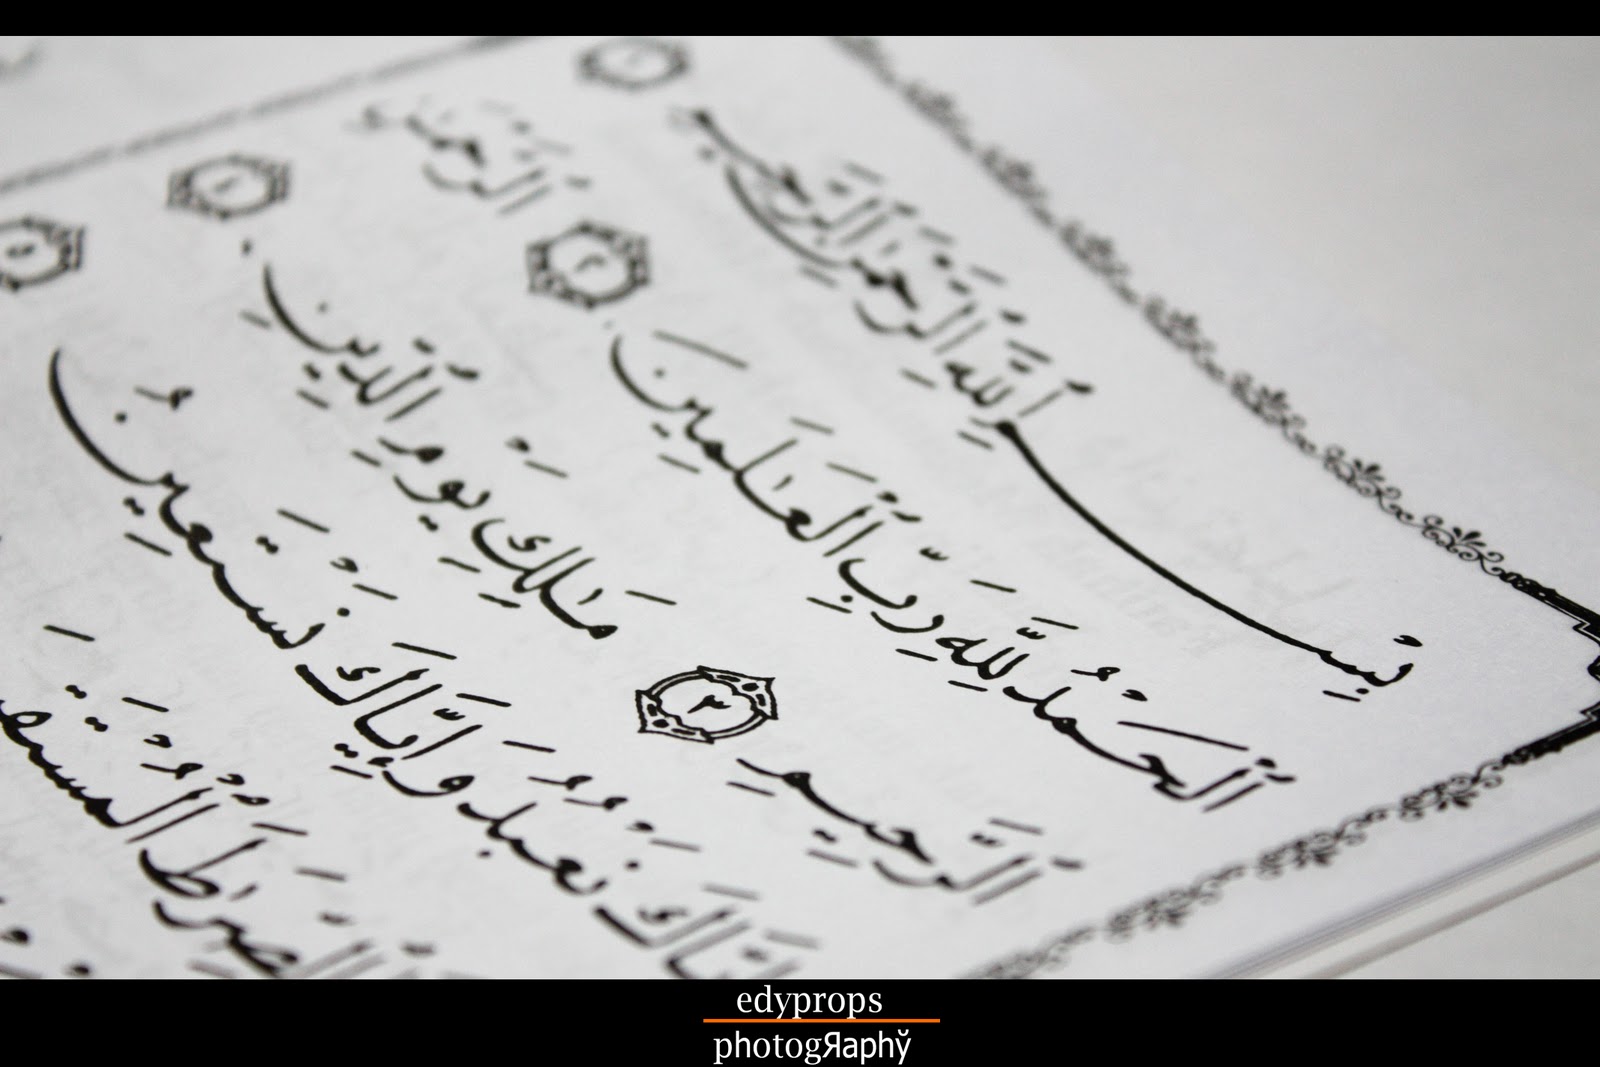 بِسْمِ ٱللَّهِ ٱلرَّحْمَٰنِ ٱلرَّحِيمِ ١
ٱلْحَمْدُ لِلَّهِ رَبِّ ٱلْعَـٰلَمِينَ ٢ ٱلرَّحْمَـٰنِ
ٱلرَّحِيمِ ٣ مَـٰلِكِ يَوْمِ ٱلدِّينِ ٤
إِيَّاكَ نَعْبُدُ وَإِيَّاكَ نَسْتَعِينُ ٥
ٱلصِّرَٰطَ
edyprops
photogЯaphў